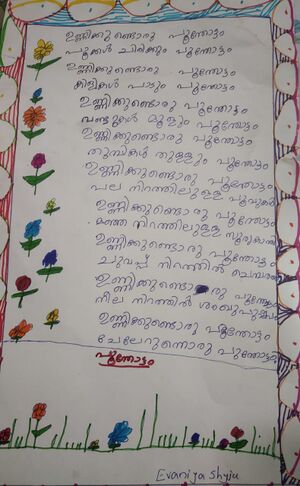 ഉണ്ണിക്കുണ്ടൊരു പൂന്തോട്ടം
പൂക്കൾ ചിരിക്കും പൂന്തോട്ടം
ഉണ്ണിക്കുണ്ടൊരു പൂന്തോട്ടം
കിളികൾ പാടും പൂന്തോട്ടം
ഉണ്ണിക്കുണ്ടൊരു പൂന്തോട്ടം
വണ്ടുകൾ മൂളും പൂന്തോട്ടം
ഉണ്ണിക്കുണ്ടൊരു പൂന്തോട്ടം
തുമ്പികൾ തുള്ളും പൂന്തോട്ടം
ഉണ്ണിക്കുണ്ടൊരു പൂന്തോട്ടം
പല നിറത്തിലുള്ള പൂവുകൾ
ഉണ്ണിക്കുണ്ടൊരു പൂന്തോട്ടം
മഞ്ഞ നിറത്തിലുള്ള സൂര്യകാന്തി
ഉണ്ണിക്കുണ്ടൊരു പൂന്തോട്ടം
ചുവപ്പ് നിറത്തിൽ ചെമ്പരത്തി
ഉണ്ണിക്കുണ്ടൊരു പൂന്തോട്ടം
നീല നിറത്തിൽ ശംഖുപുഷ്പം
ഉണ്ണിക്കുണ്ടൊരു പൂന്തോട്ടം
ചേലേറുന്നൊരു പൂന്തോട്ടം
പൂന്തോട്ടം
Evaniya Shyju